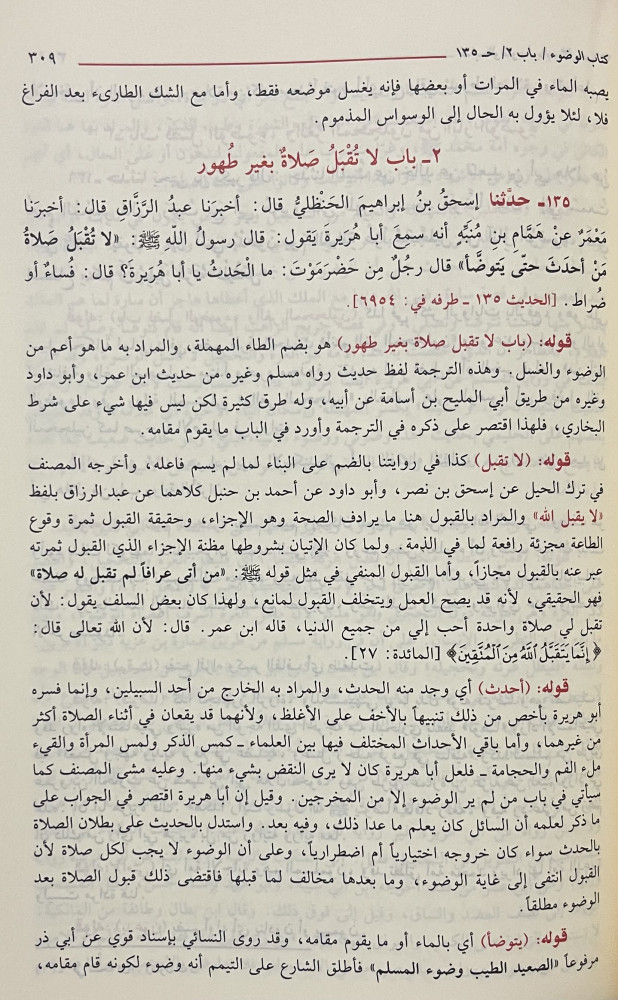 كتاب الوضوء / باب ٢/ حـ ١٣٥ ٣٠٩
يصبه الماء في المرات أو بعضها فإنه يغسل موضعه فقط، وأما مع الشك الطارىء بعد الفراغ
فلا، لئلا يؤول به الحال إلى الوسواس المذموم.
٢ـ باب لا تُقْبَلُ صَلاةٌ بغير طُهور
١٣٥ـ حدَّثنا إسحقُ بنُ إبراهيمَ الحَنْظليُّ قال: أخبرَنا عبدُ الرَّزاقِ قال: أخبرَنا
مَعْمَرٌ عنْ هَمَّامِ بنِ مُنبِّهٍ أنه سمعَ أبا هُرَيرةَ يَقول: قال رسولُ اللّهِ ﷺ: «لا تُقْبَلُ صَلاةُ
مَنْ أحدَثَ حتّى يَتوضَّأ» قال رجُلٌ مِن حَضْرَمَوْتَ: ما الْحَدثُ يا أبا هُرَيرةَ؟ قال: فُساءٌ أو
ضُراط. [الحديث ١٣٥ ـ طرفه في: ٦٩٥٤].
قوله: (باب لا تقبل صلاة بغير طهور) هو بضم الطاء المهملة، والمراد به ما هو أعم من
الوضوء والغسل. وهذه الترجمة لفظ حديث رواه مسلم وغيره من حديث ابن عمر، وأبو داود
وغيره من طريق أبي المليح بن أسامة عن أبيه، وله طرق كثيرة لكن ليس فيها شيء على شرط
البخاري، فلهذا اقتصر على ذكره في الترجمة وأورد في الباب ما يقوم مقامه.
قوله: (لا تقبل) كذا في روايتنا بالضم على البناء لما لم يسم فاعله، وأخرجه المصنف
في ترك الحيل عن إسحق بن نصر، وأبو داود عن أحمد بن حنبل كلاهما عن عبد الرزاق بلفظ
«لا يقبل الله» والمراد بالقبول هنا ما يرادف الصحة وهو الإجزاء، وحقيقة القبول ثمرة وقوع
الطاعة مجزئة رافعة لما في الذمة. ولما كان الإتيان بشروطها مظنة الإجزاء الذي القبول ثمرته
عبر عنه بالقبول مجازاً، وأما القبول المنفي في مثل قوله ﷺ: «من أتى عرافاً لم تقبل له صلاة»
فهو الحقيقي، لأنه قد يصح العمل ويتخلف القبول لمانع، ولهذا كان بعض السلف يقول: لأن
تقبل لي صلاة واحدة أحب إلي من جميع الدنيا، قاله ابن عمر. قال: لأن الله تعالى قال:
﴿إِنَّمَا يَتَقَبَّلُ ٱللَّهُ مِنَ ٱلْمُتَّقِينَ﴾ [المائدة: ٢٧].
قوله: (أحدث) أي وجد منه الحدث، والمراد به الخارج من أحد السبيلين، وإنما فسره
أبو هريرة بأخص من ذلك تنبيهاً بالأخف على الأغلظ، ولأنهما قد يقعان في أثناء الصلاة أكثر
من غيرهما، وأما باقي الأحداث المختلف فيها بين العلماء ـ كمس الذكر ولمس المرأة والقيء
ملء الفم والحجامة ـ فلعل أبا هريرة كان لا يرى النقض بشيء منها. وعليه مشى المصنف كما
سيأتي في باب من لم ير الوضوء إلا من المخرجين. وقيل إن أبا هريرة اقتصر في الجواب على
ما ذكر لعلمه أن السائل كان يعلم ما عدا ذلك، وفيه بعد. واستدل بالحديث على بطلان الصلاة
بالحدث سواء كان خروجه اختيارياً أم اضطرارياً، وعلى أن الوضوء لا يجب لكل صلاة لأن
القبول انتفى إلى غاية الوضوء، وما بعدها مخالف لما قبلها فاقتضى ذلك قبول الصلاة بعد
الوضوء مطلقاً.
قوله: (يتوضأ) أي بالماء أو ما يقوم مقامه، وقد روى النسائي بإسناد قوي عن أبي ذر
مرفوعاً «الصعيد الطيب وضوء المسلم» فأطلق الشارع على التيمم أنه وضوء لكونه قام مقامه،